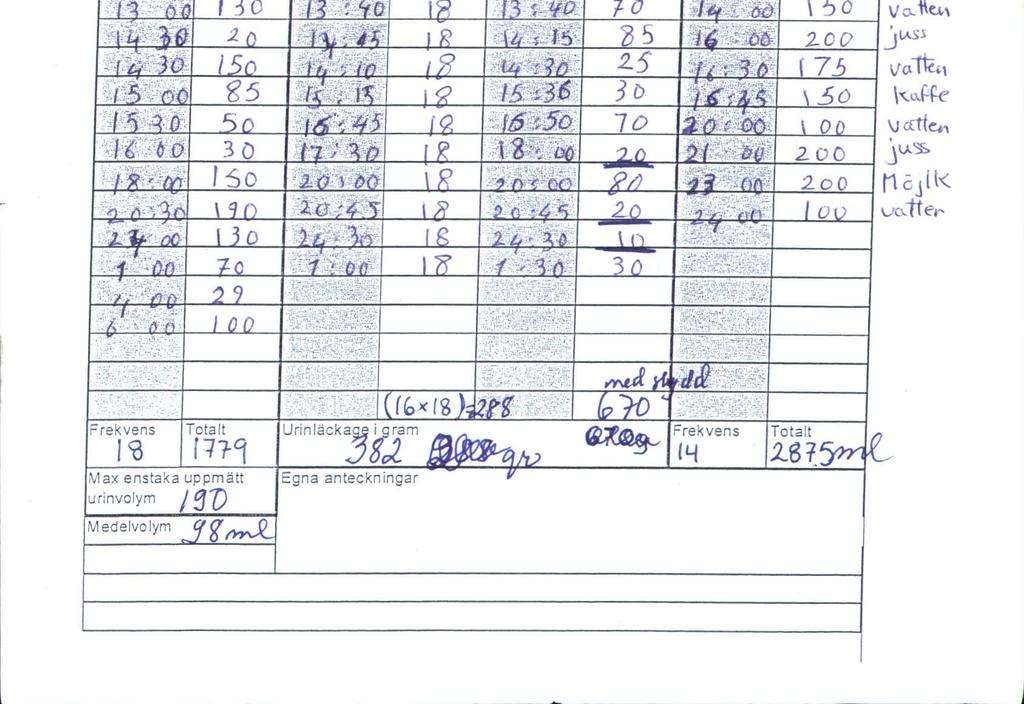 13 00 130 13:40 18 13:40 70 14 00 150 vatten
14 30 20 14:45 18 14:15 85 16 00 200 juss
14 30 150 14:10 18 14:30 25 16:30 175 vatten
15 00 85 15:15 18 15:36 30 16:45 150 kaffe
15 30 50 16:45 18 16:50 70 20:00 100 vatten
16 00 30 17:30 18 18:00 20 21 00 200 juss
18:00 150 20:00 18 20:00 80 23 00 200 Möjlk
20:30 190 20:45 18 20:45 20 24 00 100 vatten
24 00 130 24:30 18 24:30 10
1 00 70 1:00 18 1:30 30
4 00 29
6 00 100
med skydd
(16x18)=288 670
Frekvens Totalt Urinläckage i gram Frekvens Totalt
18 1779 382 gr 14 2875ml
Max enstaka uppmätt Egna anteckningar
urinvolym 190
Medelvolym 98ml